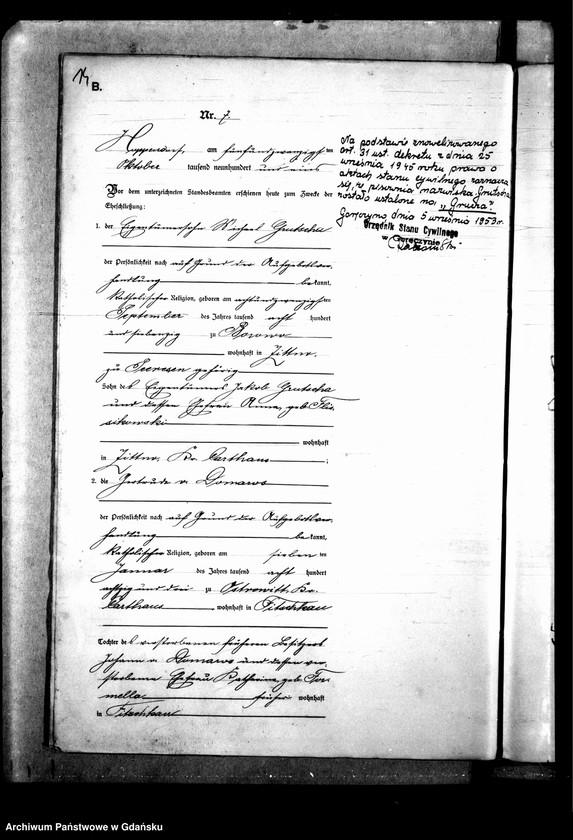 14
B.
Nr. 7.
Hoppendorf, am fünfundzwanzigsten
Oktober tausend neunhundert und eins
Vor dem unterzeichneten Standesbeamten erschienen heute zum Zwecke der
Eheschließung:
1. der Eigentümersohn Michael Grutscha
der Persönlichkeit nach auf Grund der Aufgebotsver-
handlung bekannt,
katholischer Religion, geboren am achtundzwanzigsten
September des Jahres tausend acht hundert
und siebenzig zu Borowo
wohnhaft in Zittno,
zu Seeresen gehörig
Sohn des Eigentümers Jakob Grutscha
und dessen Ehefrau Anna, geb.
wohnhaft
in Zittno, Kr. Carthaus;
2. die Gertrude v. Domaros
der Persönlichkeit nach auf Grund der Aufgebotsver-
handlung bekannt,
katholischer Religion, geboren am sieben ten
Januar des Jahres tausend acht hundert
achtzig und drei zu Ostrowitt, Kr.
Carthaus, wohnhaft in Fitschkau
Tochter des verstorbenen früheren Besitzers
Johann v. Domaros und dessen ver-
storbene Ehefrau Katharina, geb. For-
mella früher wohnhaft
in Fitschkau
Na podstawie znowelizowanego
art. 31 ust. dekretu z dnia 25
września 1945 roku prawo o
aktach stanu cywilnego zaznacza
się, iż pisownia nazwiska Grutscha
została ustalona na: „Grucza".
Goręczyno, dnia 5 września 1953 r.
Urzędnik Stanu Cywilnego
w Goręczynie
Archiwum Państwowe w Gdańsku